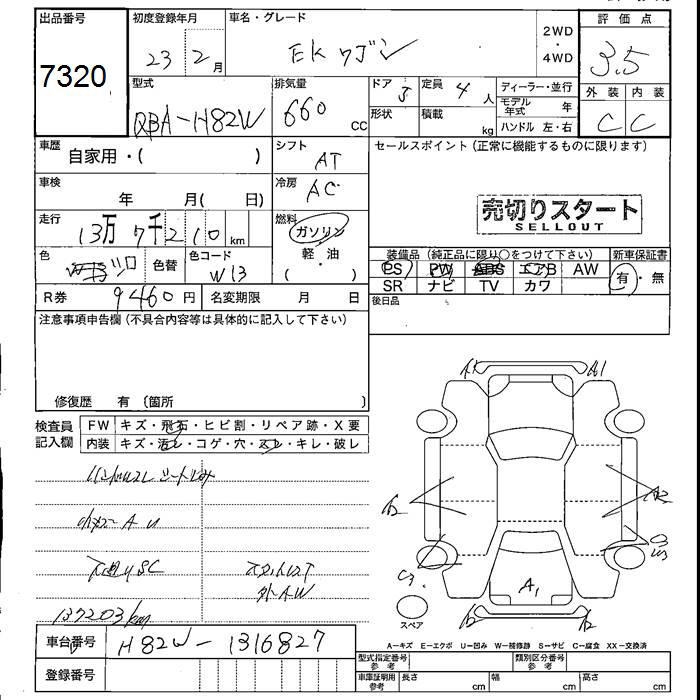 出品番号
7320
初度登録年月
23 2月
車名・グレード
EKワゴン
2WD
・
4WD
評価点
3.5
型式
QBA-H82W
排気量
660 cc
ドア 5
定員 4人
形状
積載 kg
ディーラー・並行
モデル年式 年
ハンドル 左・右
外装 内装
C C
車歴
自家用・( )
シフト
AT
セールスポイント(正常に機能するものに限ります)
車検
年 月( 日)
冷房
AC
売切りスタート
SELLOUT
走行
13万7千210km
燃料
ガソリン
・
軽・油
( )
色
色替
色コード
W13
装備品(純正品に限り○をつけて下さい)
新車保証書
PS PW ABS エアB AW
SR ナビ TV カワ
有・無
R券 9460円
名変期限 月 日
後日品
注意事項申告欄(不具合内容等は具体的に記入して下さい)
修復歴 有〔箇所 〕
検査員記入欄
FW キズ・飛石・ヒビ割・リペア跡・X要
内装 キズ・汚レ・コゲ・穴・スレ・キレ・破レ
A1
A1
A2
A2
C3
A1
スペア
137203km
車台番号
H82W-1316827
登録番号
A-キズ E-エクボ U-凹み W-補修跡 S-サビ C-腐食 XX-交換済
型式指定番号 参考
類別区分番号 参考
車庫証明用 参考
長さ cm
幅 cm
高さ cm